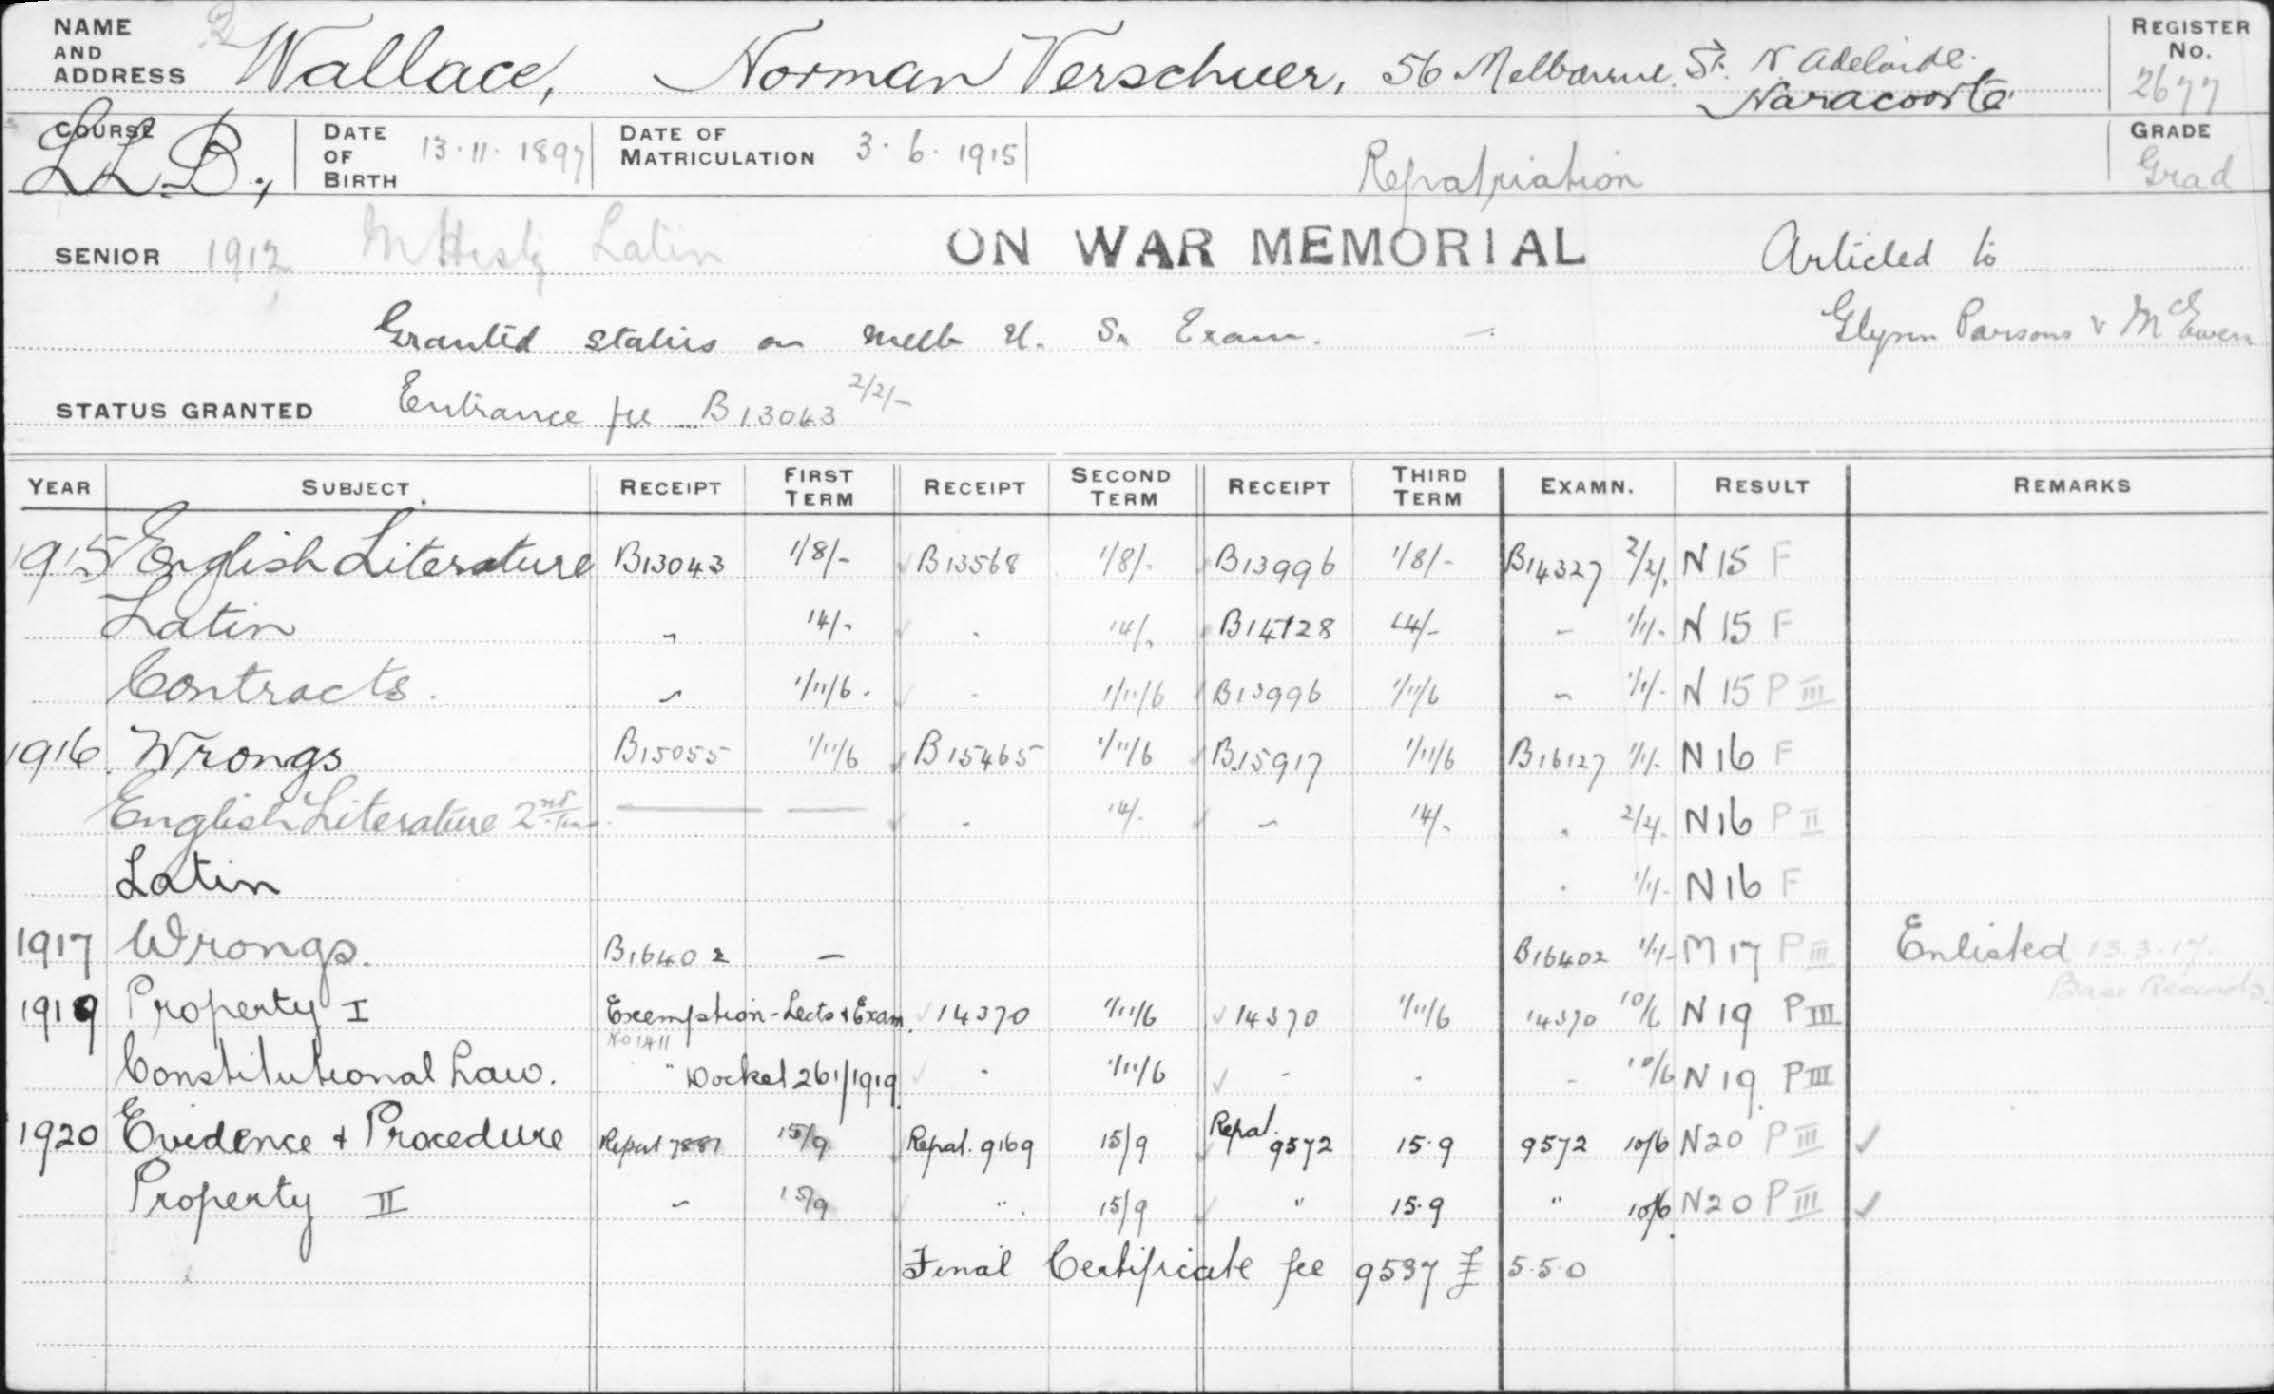 NAME AND ADDRESS Wallace, Norman Verschuer, 56 Melbourne St. N. Adelaide. REGISTER No. 2677
Naracoorte
COURSE LL.B., DATE OF BIRTH 13.11.1897 DATE OF MATRICULATION 3.6.1915 Repatriation GRADE Grad
SENIOR 1912 Latin ON WAR MEMORIAL Articled to
Granted status on Melb U. Sr Exam. Glynn Parsons & McEwen
STATUS GRANTED Entrance fee B13043 2/2/-
YEAR SUBJECT RECEIPT FIRST TERM RECEIPT SECOND TERM RECEIPT THIRD TERM EXAMN. RESULT REMARKS
1915 English Literature B13043 1/8/- B13568 1/8/- B13996 1/8/- B14327 2/2/. N 15 F
Latin " 14/- " 14/- B14128 14/- " 1/1/- N 15 F
Contracts. " 1/11/6. " 1/11/6 B13996 1/11/6 " 1/1/- N 15 P III
1916 Wrongs B15055 1/11/6 B15465 1/11/6 B15917 1/11/6 B16127 1/1/- N16 F
English Literature 2nd time — — " 14/- " 14/- " 2/2/. N16 P II
Latin " 1/1/- N16 F
1917 Wrongs. B16402 — B16402 1/1/- M 17 P III Enlisted 13.3.17.
Base Records.
1919 Property I Exemption - Lects & Exam. 14370 1/11/6 14370 1/11/6 14370 10/6 N 19 P III
No 1411
Constitutional Law. " Docket 261/1919. " 1/11/6 " " " 10/6 N 19 P III
1920 Evidence & Procedure Repat 7887 15/9 Repat. 9169 15/9 Repat. 9572 15.9 9572 10/6 N20 P III ✓
Property II " 15/9 " 15/9 " 15.9 " 10/6. N20 P III ✓
Final Certificate fee 9537 £ 5.5.0